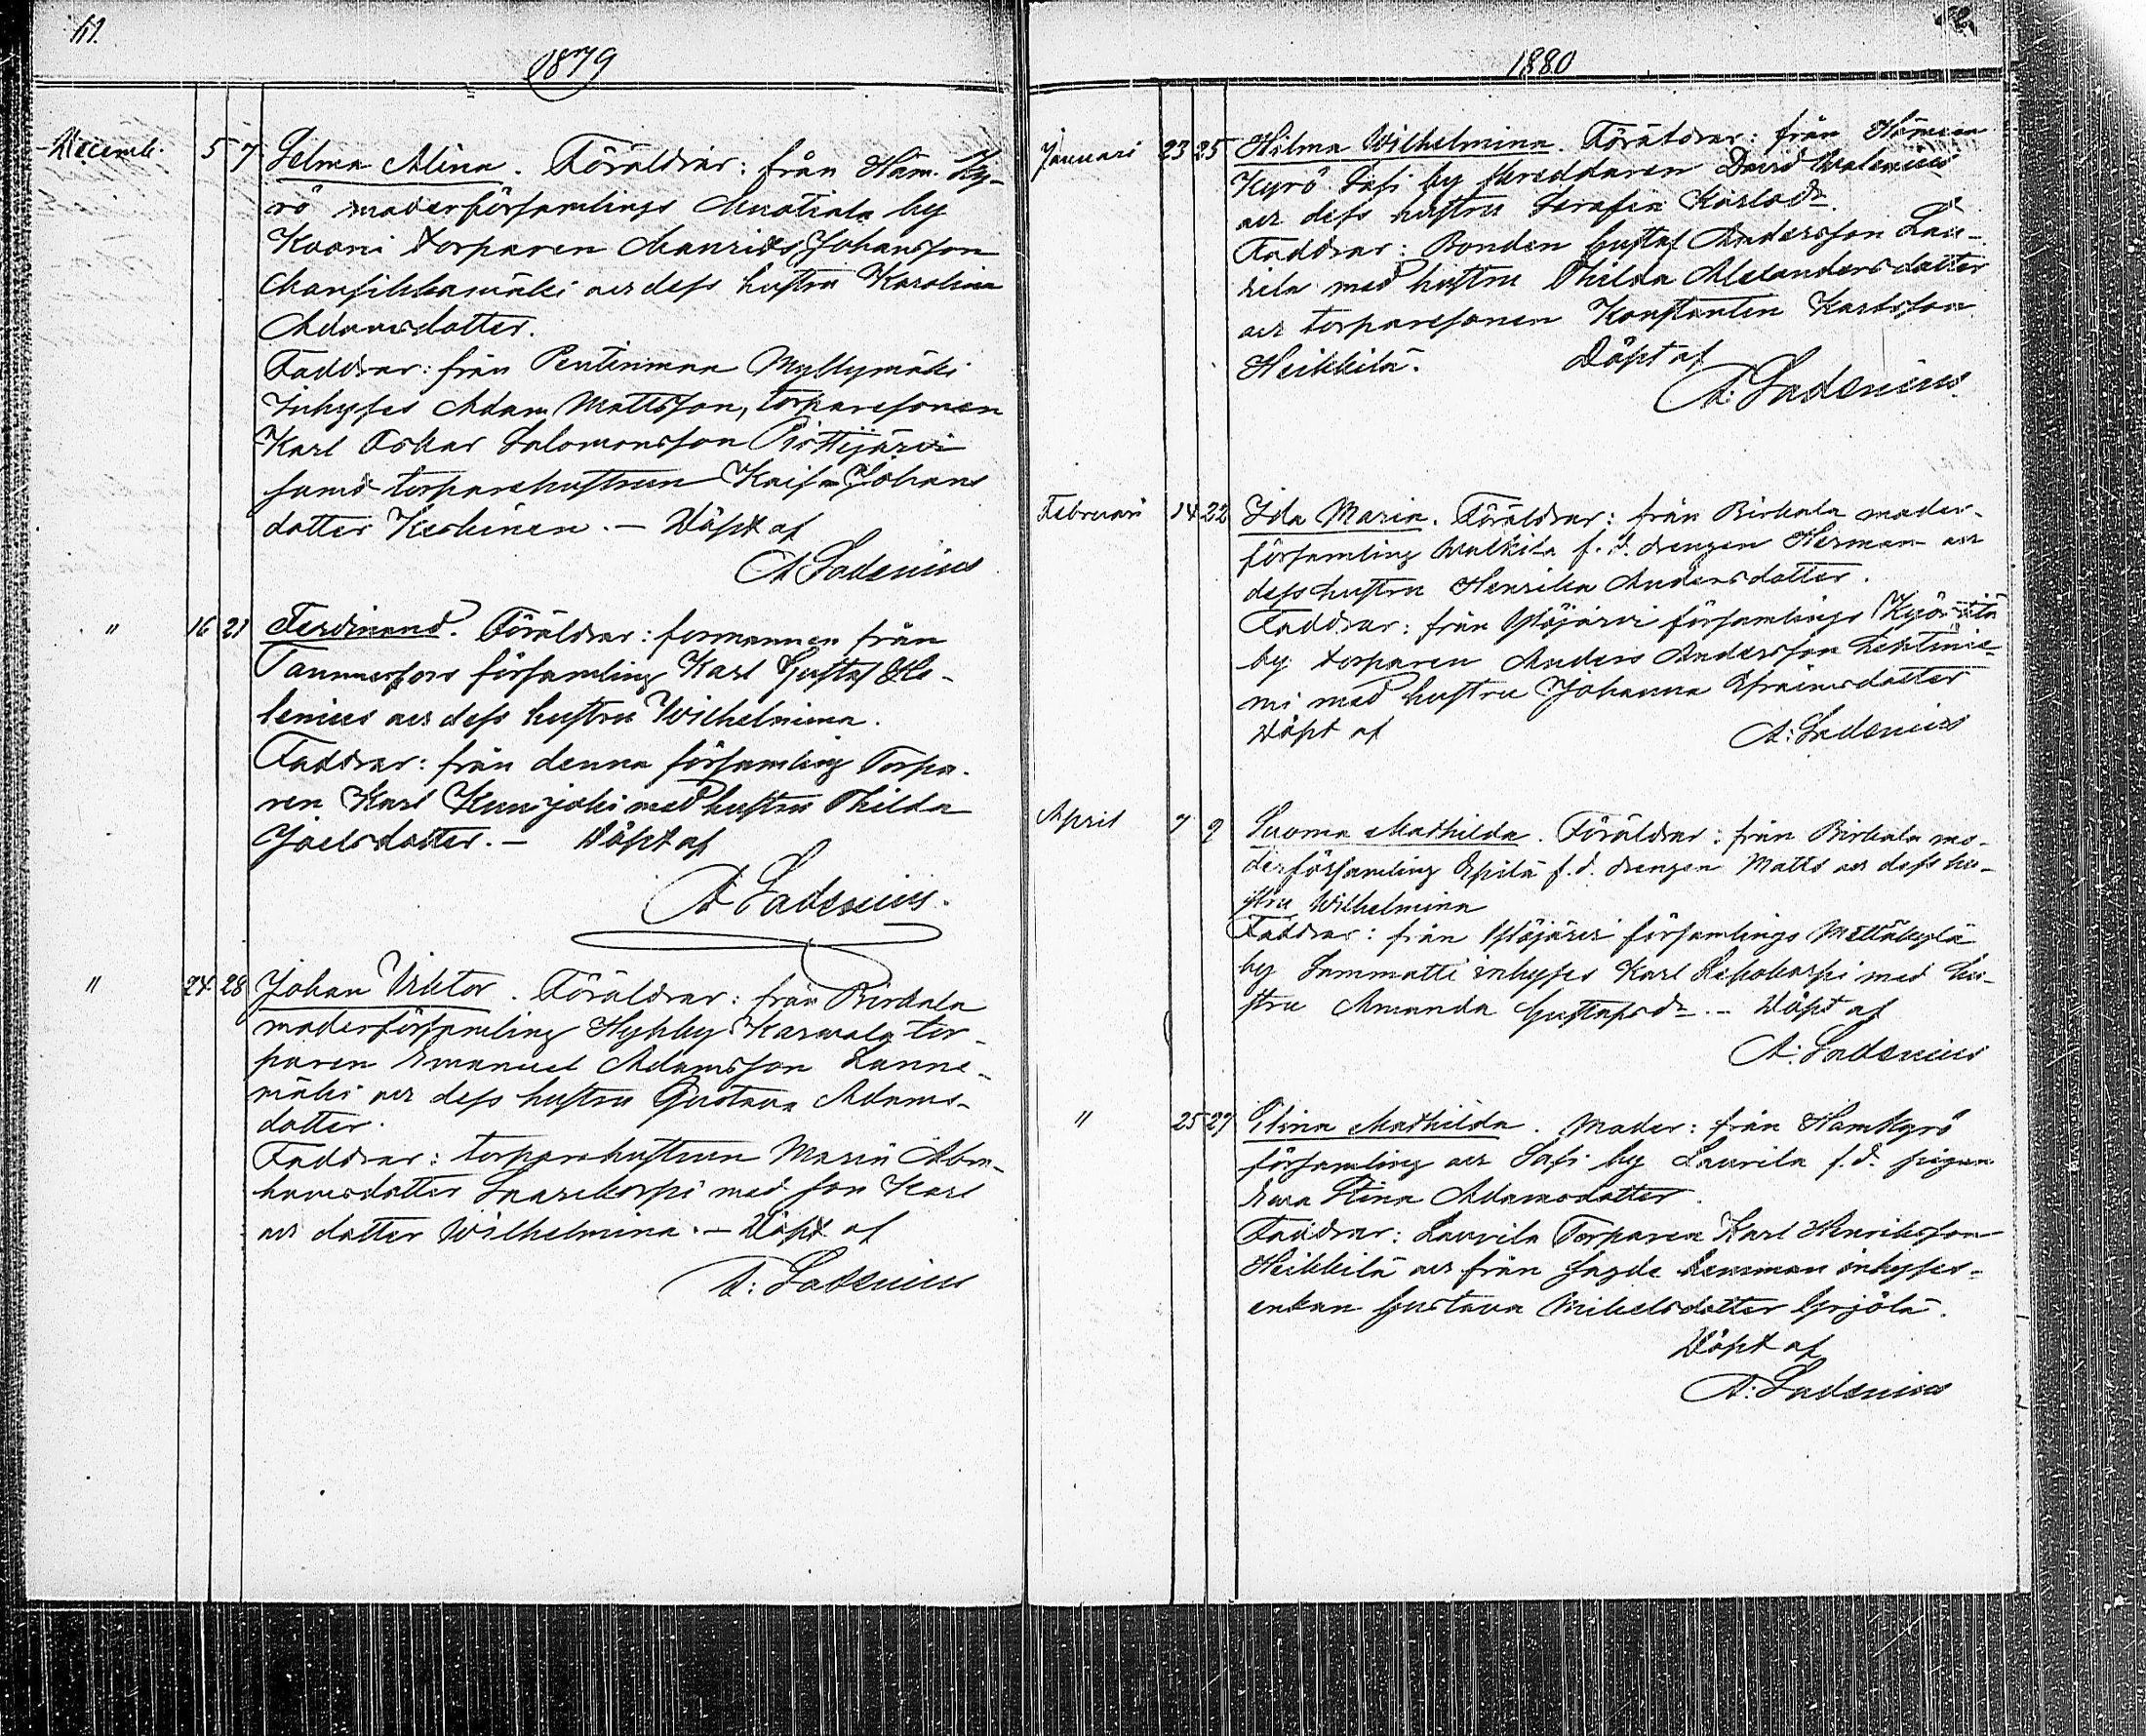 1879
Decemb. 5 7 Selma Alina. Föräldrar: från Ham. Ky-
rö moderförsamlings by
torparen Maurits Johansson
Mansikkamäki och dess hustru Karolina
Adamsdotter.
Faddrar: från Pentinmaa Myllymäki
Inhyses Adam Mattsson, torparesonen
Karl Oskar Salomonsson
samt torparehustrun Kaisa Johans
dotter Keskinen. — Döpt af
A Ladenius
" 16 21 Ferdinand. Föräldrar: formannen från
Tammerfors församling Karl Gustaf He-
lenius och dess hustru Wilhelmina.
Faddrar: från denna församling Torpa-
ren Karl Kuusjoki med hustru Thilda
Joelsdotter. — Döpt af
A Ladenius.
" 24 28 Johan Viktor. Föräldrar: från Birkala
moderförsamling Hyhky tor-
paren Emanuel Adamsson Lanne-
mäki och dess hustru Gustava Adams-
dotter.
Faddrar: torparehustrun Maria Abra-
hamsdotter Saarikorpi med son Karl
och dotter Wilhelmina. — Döpt af
A: Ladenius
1880
Januari 23 25 Hilma Wilhelmina. Föräldrar: från Hämeen
Kyrö Sasi by skreddaren David Walenius
och dess hustru Serafia Karlsdr.
Faddrar: Bonden Gustaf Andersson Lau-
rila med hustru Thilda Alexandersdotter
och torparesonen Konstantin Karlsson
Heikkilä. Döpt af
A: Ladenius.
Februari 14 22 Ida Maria. Föräldrar: från Birkala moder-
församling f. d. drengen Herman och
dess hustru Henrika Andersdotter.
Faddrar: från Ylöjärvi församlings
by torparen Anders Andersson Lehtinie-
mi med hustru Johanna Efraimsdotter
Döpt af A: Ladenius
April 7 9 Suoma Mathilda. Föräldrar: från Birkala mo-
derförsamling Epilä f. d. drengen Matts och dess hu-
stru Wilhelmina
Faddrar: från Ylöjärvi församlings Mettäkylä
by Sammatti inhyses Karl Repokorpi med hu-
stru Amanda Gustafsdr. — Döpt af
A: Ladenius
" 25 27 Stina Mathilda. Moder: från HamKyrö
församling och Sasi by Laurila f. d. pigan
Eva Stina Adamsdotter.
Faddrar: Laurila Torparen Karl Henriksson
Heikkilä och från sagde hemman inhyses-
enkan Gustava Mikelsdotter Yrjölä.
Döpt af
A: Ladenius